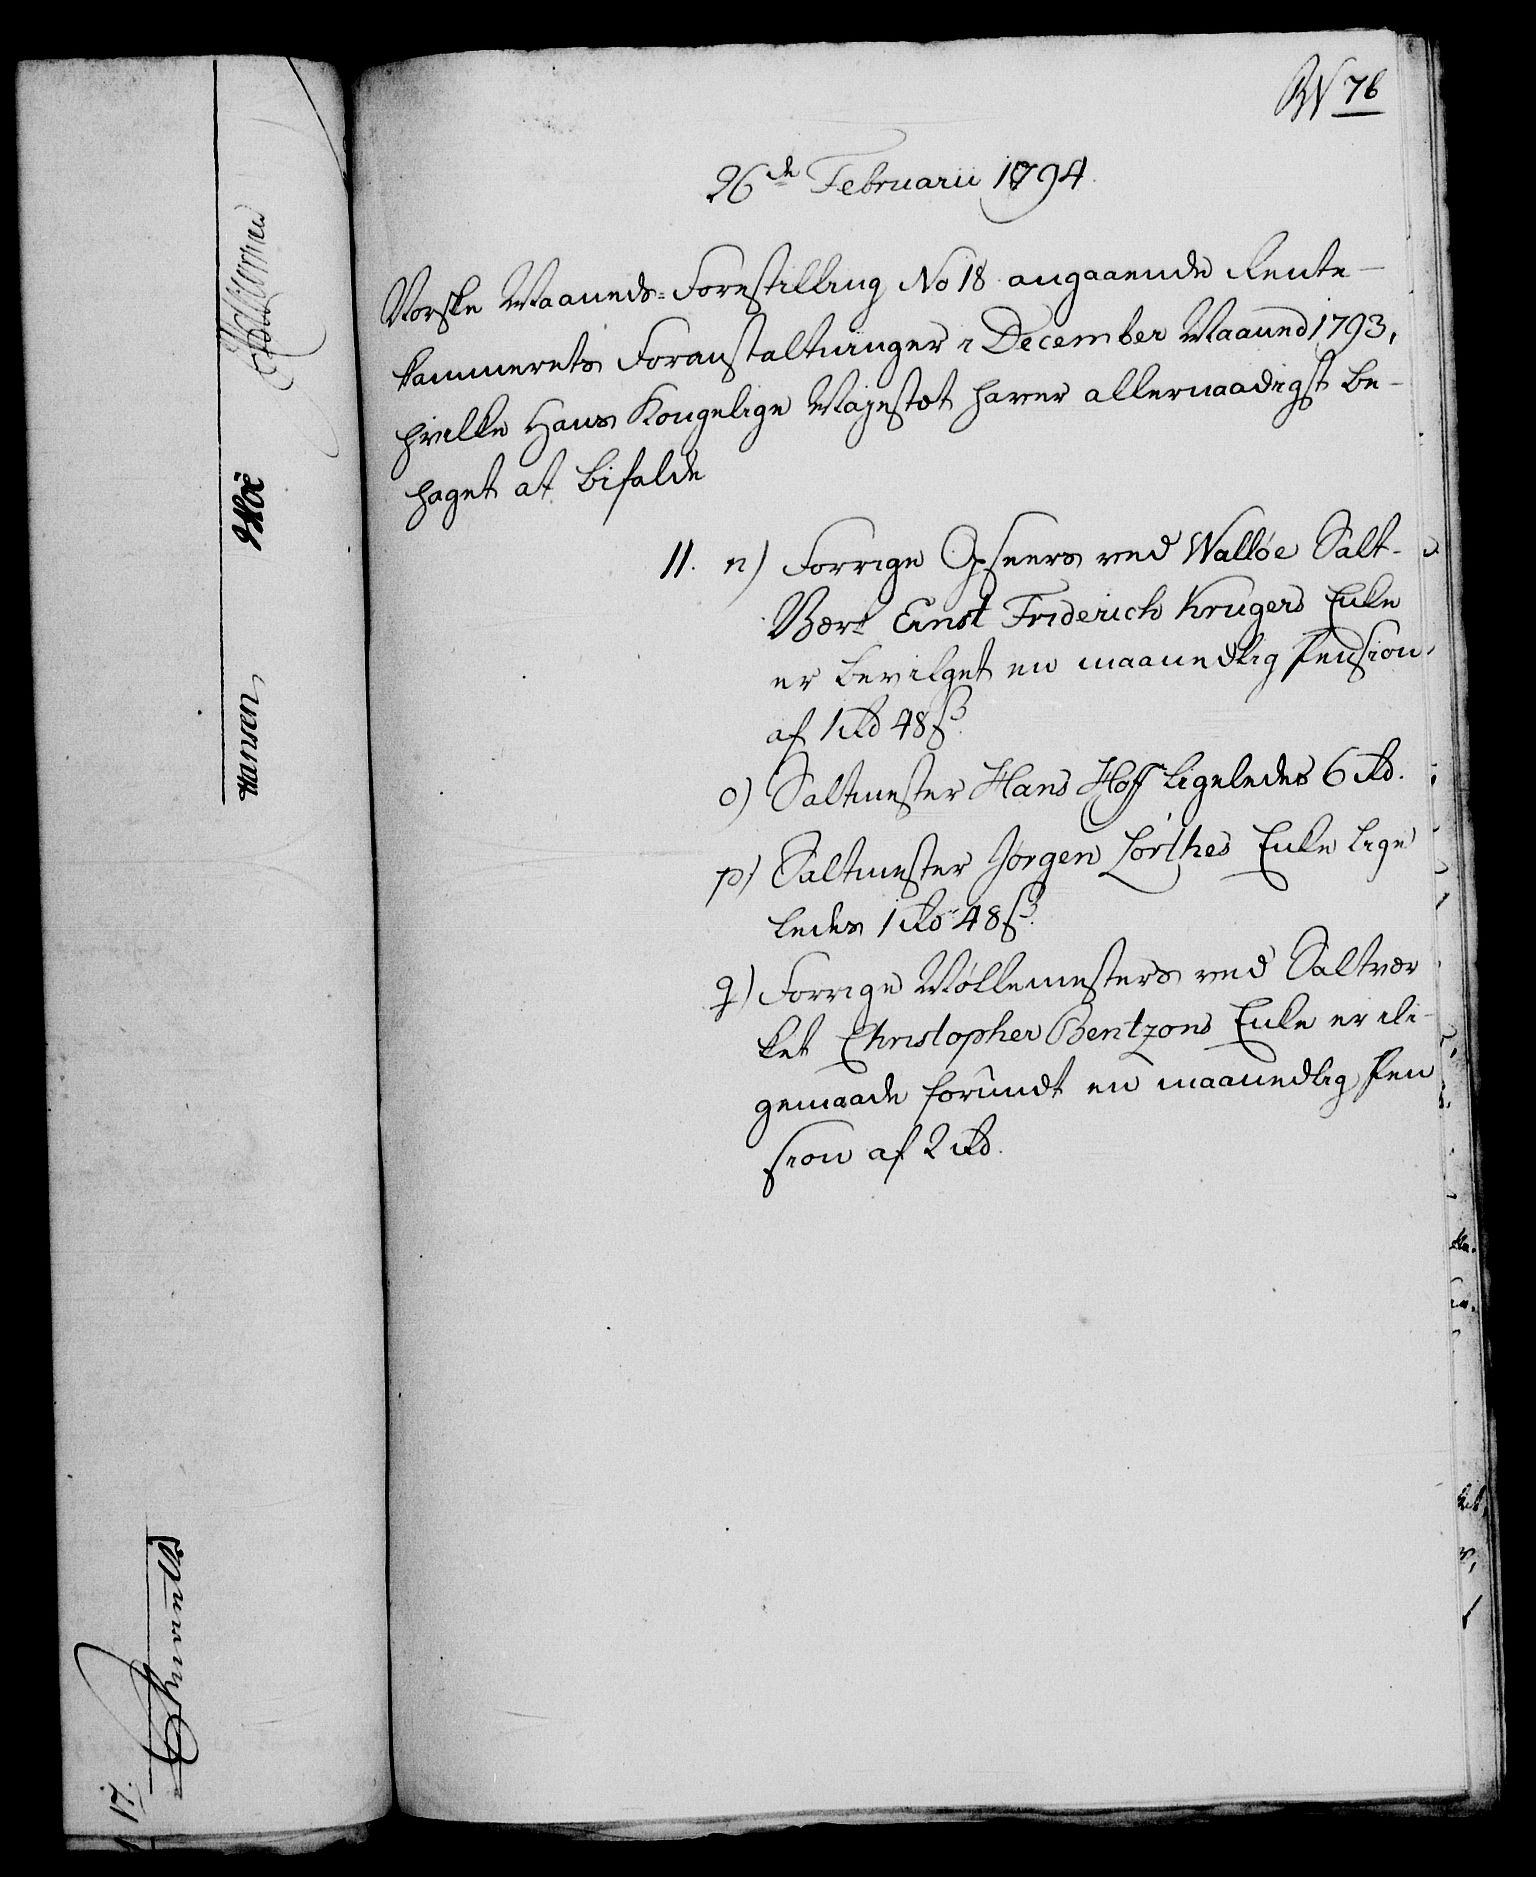 RN 76
26de Februarii 1794.
Norske Maaneds-Forestilling No 18 angaaende Rente-
kammerets Foranstaltninger i December Maaned 1793,
hvilke Hans Kongelige Majestæt haver allernaadigst be-
haget at bifalde
11. n) Forrige Opseers ved Walløe Salt-
Værk Ernst Friderich Krugers Enke
er bevilget en maanedlig Pension
af 1 Rd 48 ß.
o) Saltmester Hans Hoff ligeledes 6 Rd.
p) Saltmester Jørgen Lørthes Enke lige
ledes 1 Rd 48 ß.
q) Forrige Møllemesters ved Saltvær
ket Christopher Bentzons Enke er ili-
gemaade forundt en maanedlig Pen
sion af 2 Rd.
Hansen
17.